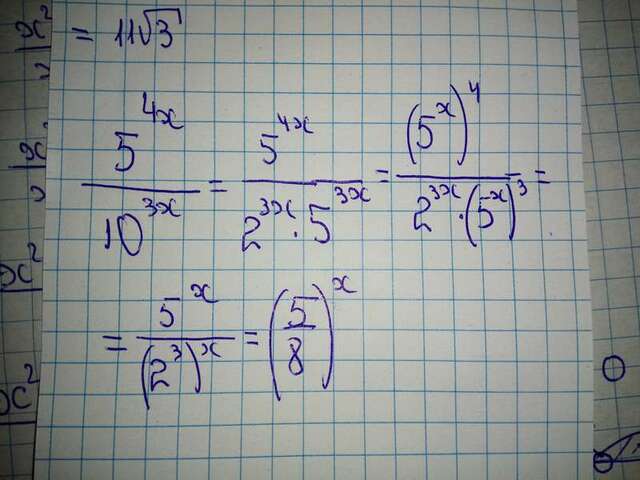 = 11√3
5^{4x}/10^{3x} = 5^{4x}/(2^{3x} · 5^{3x}) = (5^x)^4/(2^{3x} · (5^x)^3) =
= 5^x/(2^3)^x = (5/8)^x